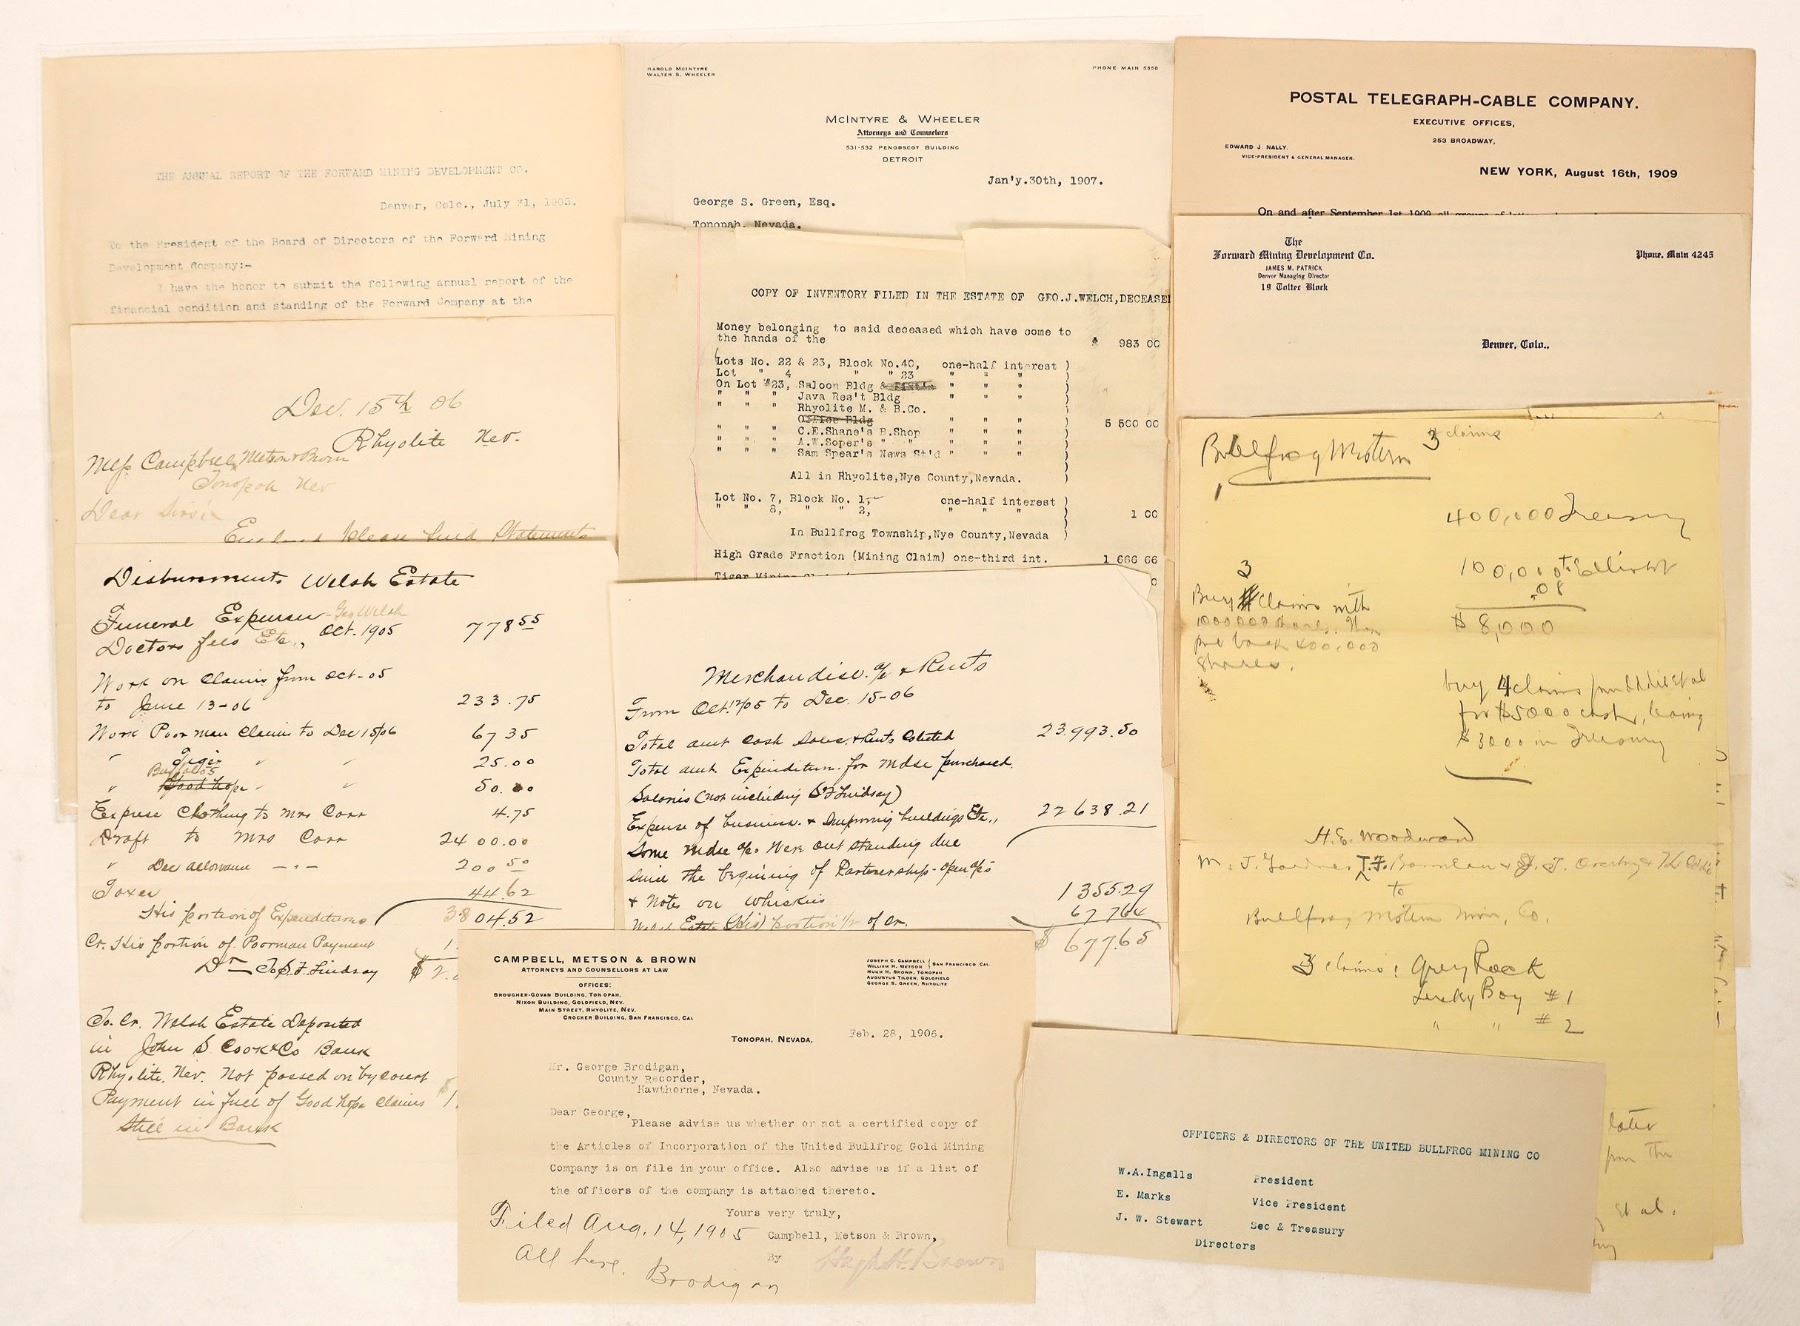 THE ANNUAL REPORT OF THE FORWARD MINING DEVELOPMENT CO.
Denver, Colo., July 31, 1905.
To the President of the Board of Directors of the Forward Mining
Development Company:-
I have the honor to submit the following annual report of the
financial condition and standing of the Forward Company at the
Dec. 15th 06
Rhyolite Nev.
Mess Campbell, Metson & Brown
Tonopah Nev
Dear Sirs:
Enclosed please find Statements
Disbursments Welsh Estate
Funeral Expenses Geo Welsh
Doctors fees Etc., Oct. 1905 778 55
Work on Claims from Oct-05
to June 13-06 233.75
Work Poorman Claim to Dec 15/06 67 35
" Tiger " " 25.00
Buffalos
" Good hope " " 50.00
Exprese Clothing to Mrs Carr 4.75
Draft to Mrs Carr 2400.00
" Dec allowance - - - 200 50
Taxes 44.62
His portion of Expenditures 3804.52
Cr. His portion of Poorman Payment
Dr To S. F. Lindsay
To Cr. Welsh Estate Deposited
in John S. Cook & Co Bank
Rhyolite, Nev. Not passed on by court
Payment in full of Good hope Claims
Still in Bank
HAROLD MCINTYRE
WALTER S. WHEELER
PHONE MAIN 5350
MCINTYRE & WHEELER
Attorneys and Counselors
531-532 PENOBSCOT BUILDING
DETROIT
Jan'y.30th, 1907.
George S. Green, Esq.
Tonopah, Nevada.
COPY OF INVENTORY FILED IN THE ESTATE OF GEO.J.WELCH,DECEASE
Money belonging to said deceased which have come to
the hands of the $ 983 00
Lots No. 22 & 23, Block No.40, one-half interest )
Lot " 4 " " 23 " " " )
On Lot #23, Saloon Bldg & " " " )
" " " Java Res't Bldg " " " )
" " " Rhyolite M. & B.Co.
Office Bldg 5 500 00
" " " C.E.Shane's B.Shop " " " )
" " " A.W.Soper's " " " " " )
" " " Sam Spear's News St'd " " " )
All in Rhyolite,Nye County,Nevada.
Lot No. 7, Block No. 1, one-half interest )
" " 8, " " 2, " " " ) 1 00
In Bullfrog Township,Nye County,Nevada )
High Grade Fraction (Mining Claim) one-third int. 1 666 66
Merchandise a/c & Rents
From Oct 12/05 to Dec. 15-06
Total amt Cash Sales & Rents Colected 23.993.50
Total amt Expenditure for mdse purchased
Salaries (not including S F Lindsay)
Expense of business & Improving buildings Etc., 22638.21
Some mdse a/c were out standing due
since the begining of Partnership - open a/c
& Notes on Whiskies 1355.29
Welsh Estate (His) portion 1/2 of Cr. 67764
$ 677.65
CAMPBELL, METSON & BROWN
ATTORNEYS AND COUNSELLORS AT LAW
OFFICES:
BROUGHER-GOVAN BUILDING, TONOPAH,
NIXON BUILDING, GOLDFIELD, NEV.
MAIN STREET, RHYOLITE, NEV.
CROCKER BUILDING, SAN FRANCISCO, CAL.
JOSEPH C. CAMPBELL
WILLIAM H. METSON
SAN FRANCISCO CAL.
HUGH H. BROWN, TONOPAH
AUGUSTUS TILDEN, GOLDFIELD
GEORGE S. GREEN, RHYOLITE
TONOPAH, NEVADA, Feb. 28, 1906.
Mr. George Brodigan,
County Recorder,
Hawthorne, Nevada.
Dear George,
Please advise us whether or not a certified copy of
the Articles of Incorporation of the United Bullfrog Gold Mining
Company is on file in your office. Also advise us if a list of
the officers of the company is attached thereto.
Yours very truly,
Campbell, Metson & Brown,
By Hugh H. Brown
Filed Aug. 14, 1905
All here.
Brodigan
POSTAL TELEGRAPH-CABLE COMPANY.
EXECUTIVE OFFICES,
253 BROADWAY,
EDWARD J. NALLY,
VICE-PRESIDENT & GENERAL MANAGER.
NEW YORK, August 16th, 1909
On and after September 1st 1909 all
The
Forward Mining Development Co.
JAMES M. PATRICK
Denver Managing Director
19 Toltec Block
Phone, Main 4245
Denver, Colo.,
Bullfrog Western 3 claims
1
400,000 Treasury
100,000 to Elliott
.08
$ 8,000
3
Buy claims with
1000000 shares. Then
put back 400,000
shares.
buy 4 claims from
for $5000 cash, leaving
$3000 in Treasury
H. E. Woodward
to
Bullfrog Western Min. Co.
3 claims: Grey Rock
Lucky Boy #1
" " #2
later
from the
et al.
OFFICERS & DIRECTORS OF THE UNITED BULLFROG MINING CO
W.A.Ingalls President
E. Marks Vice President
J. W. Stewart Sec & Treasury
Directors